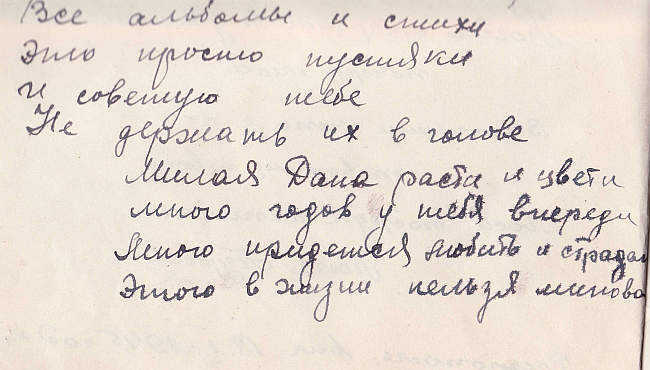 Все альбомы и стихи
Это просто пустяки
И советую тебе
Не держать их в голове
Милая Дана расти и цвети
много годов у тебя впереди
Много придется любить и страда
Этого в жизни нельзя минова